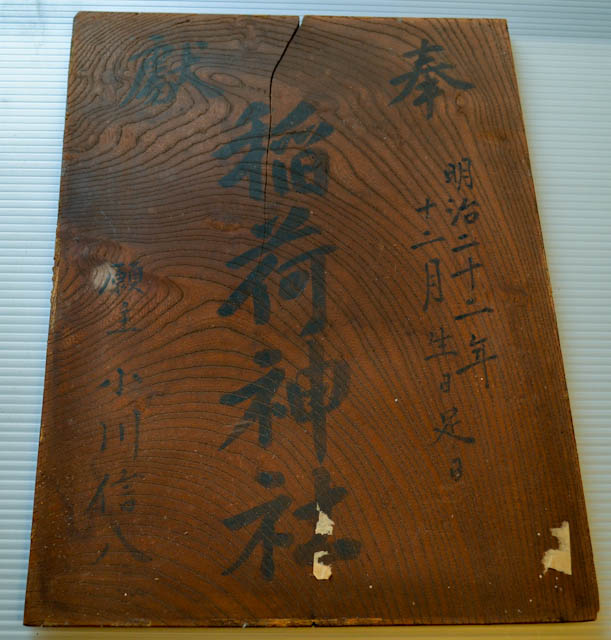 奉
獻
明治二十二年
十二月生日足日
稲荷神社
願主 小川信八